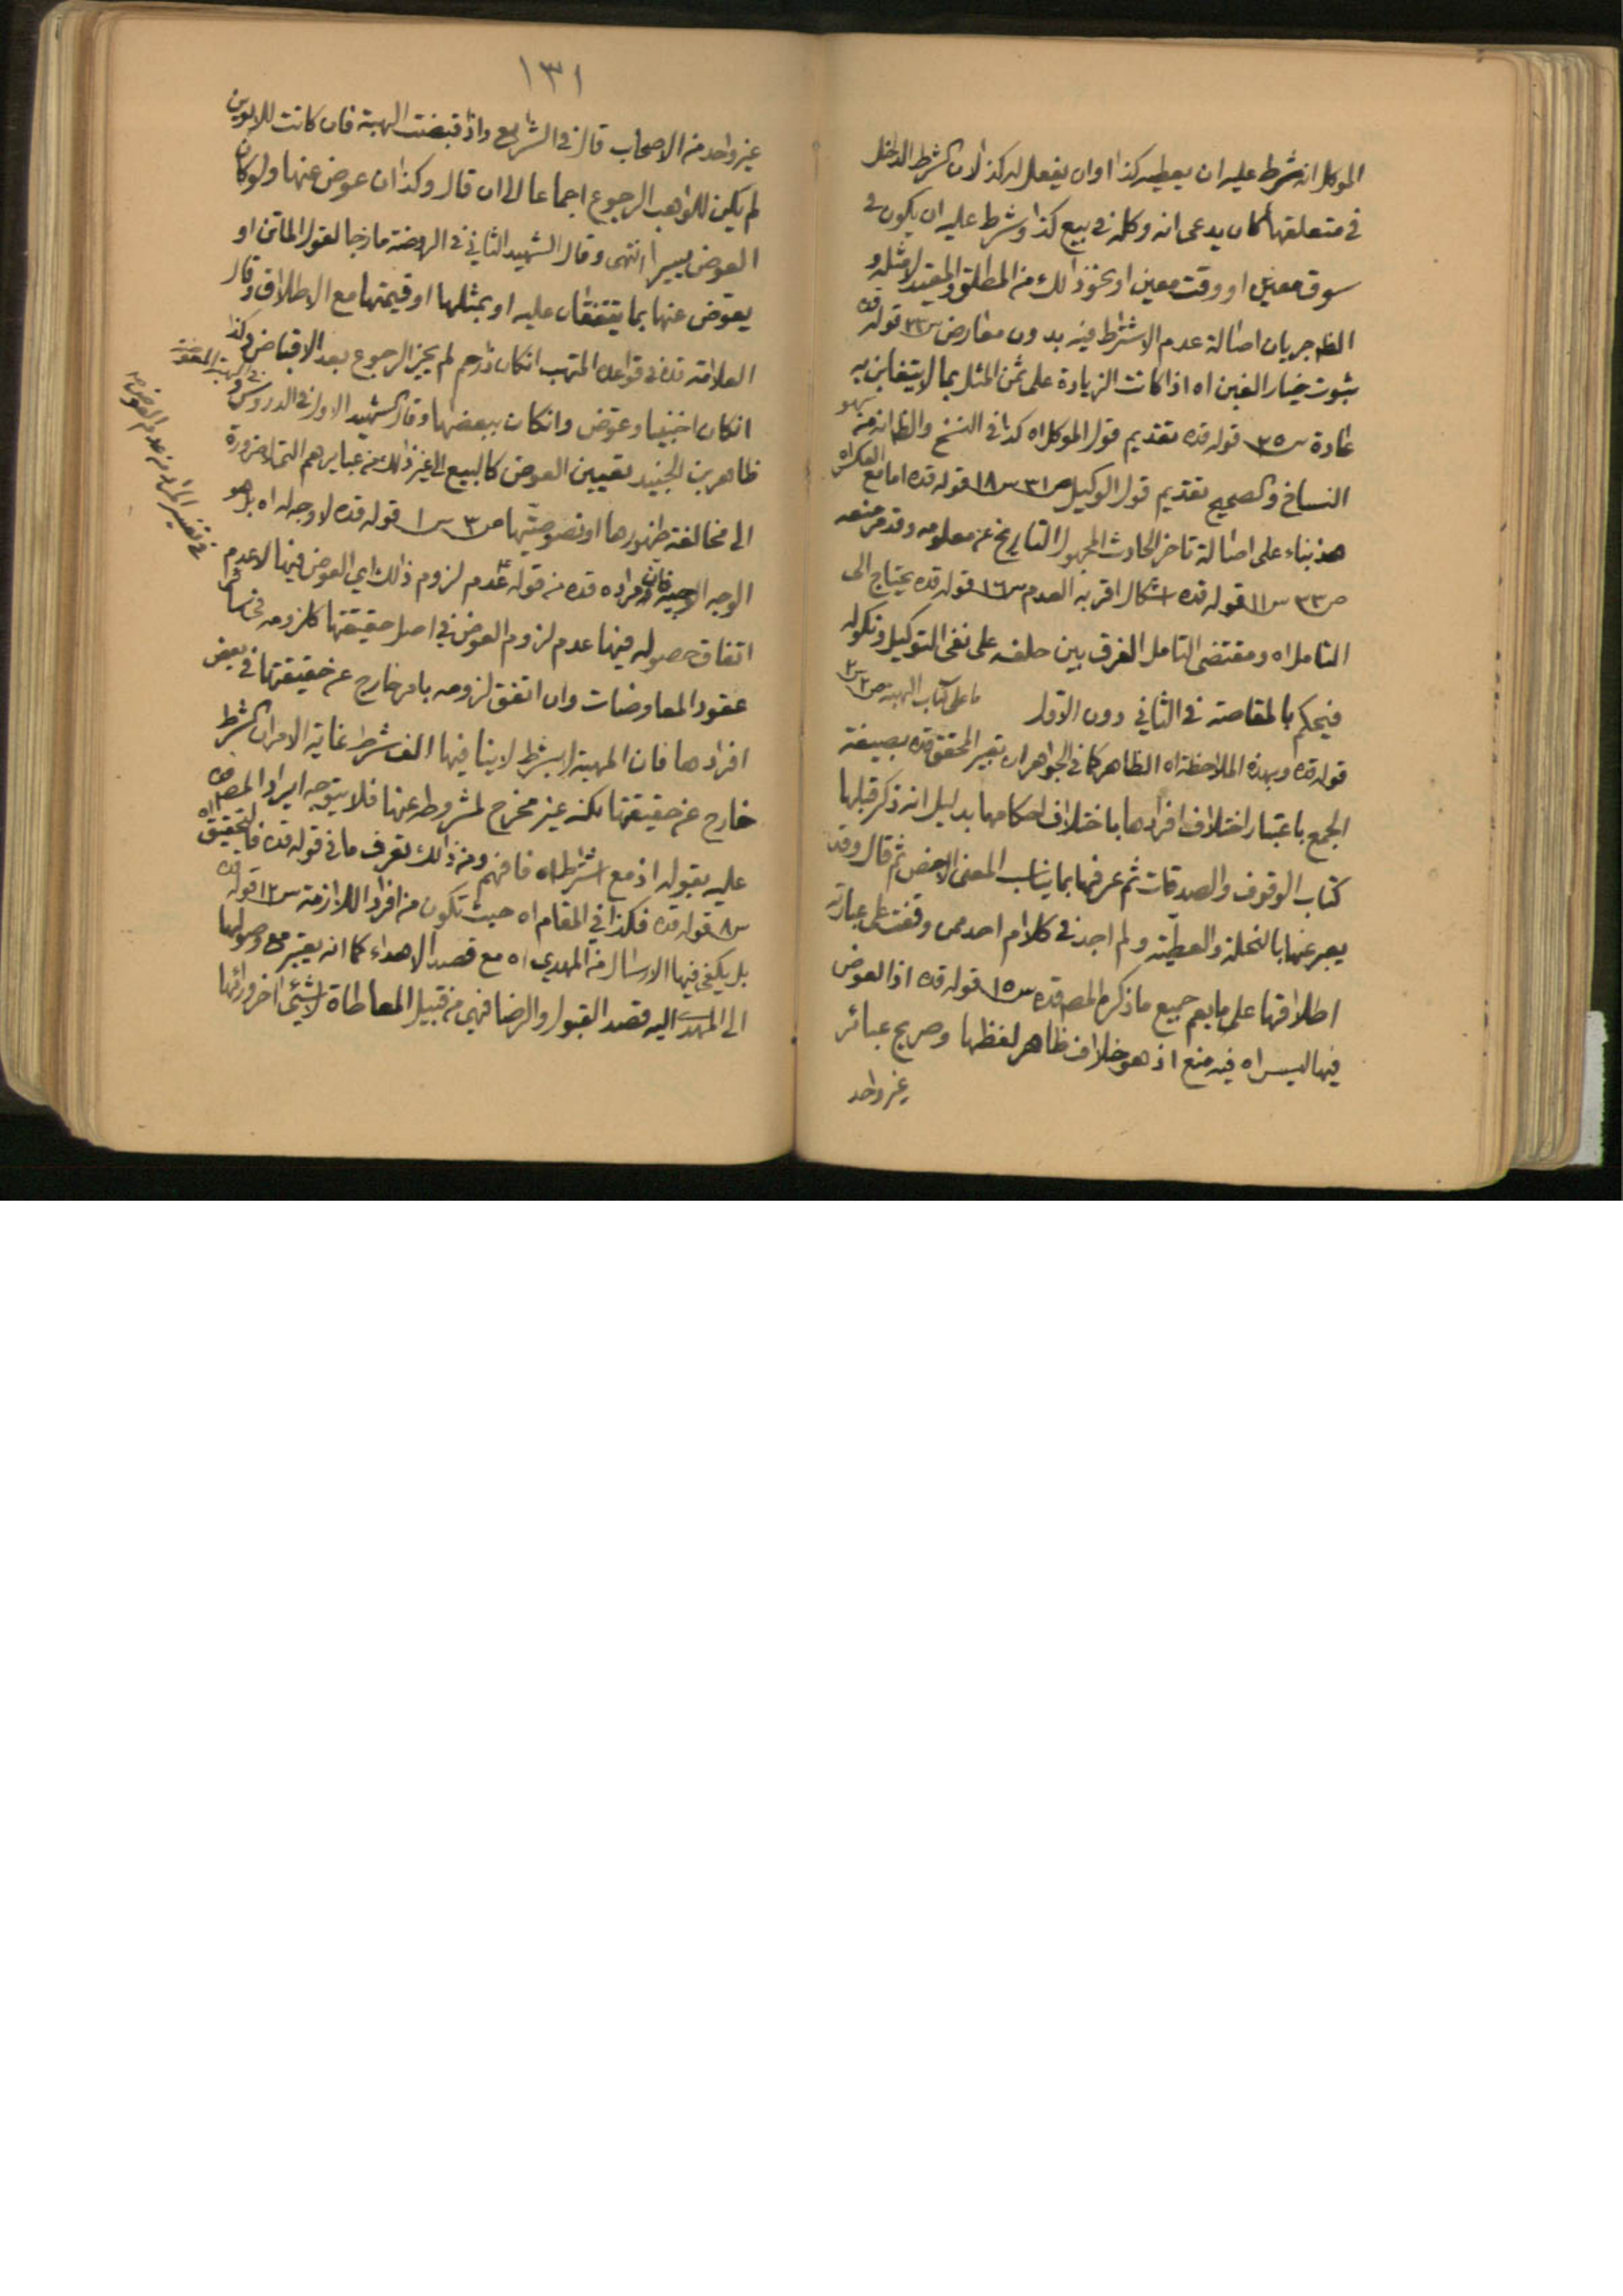 الموكل انه شرط عليه ان يعطيه كذا او ان يفعل له كذا لان الشرط الداخل
في متعلقها كان يدعى انه وكله في بيع كذا وشرط عليه ان يكون في
سوق معين او وقت معين او نحو ذالك من المطلق والمقيد لا مثله و
الظ جريان اصالة عدم الاشتراط فيه بدون معارض س٢٣ قوله قده
بثبوت خيار الغبن اه اذا كانت الزيادة على ثمن المثل بما لا يتغابن به
عادة س٣٥ قوله قده تقديم قول الموكل اه كذا في النسخ والظ انه من سهو
النساخ والصحيح تقديم قول الوكيل ص٣١ س١٨ قوله قده اما مع العكس اه
هذ بناء على اصالة تاخر الحادث المجهول التاريخ عن معلومه وقد مر منعه
ص٣٣ س١١ قوله قده اشكال اقربه العدم س١٦ قوله قده يحتاج الى
التامل اه ومقتضى التامل الفرق بين حلفه على نفى التوكيل ونكوله
فيحكم بالمقاصة في الثاني دون الاول ما على كتاب الهبة ص٢ س٢
قوله قده وبهذه الملاحظة اه الظاهر كما في الجواهر ان تعبير المحقق قده بصيغة
الجمع باعتبار اختلاف افرادها باختلاف احكامها بدليل انه ذكر قبلها
كتاب الوقوف والصدقات ثم عرفها بما يناسب المعنى الاخص ثم قال وقد
يعبر عنها بالنحلة والعطية ولم اجد في كلام احد ممن وقفت على عبارته
اطلاقها على ما يعم جميع ما ذكره المصه قده س١٥ قوله قده اذ العوض
فيها ليس اه فيه منع اذ هو خلاف ظاهر لفظها وصريح عبائر
غير واحد
١٣١
غير واحد من الاصحاب قال في الشرايع واذا قبضت الهبة فان كانت للابوين
لم يكن للواهب الرجوع اجماعا الى ان قال وكذا ان عوض عنها ولو كان
العوض يسيرا انتهى وقال الشهيد الثاني في الروضة مازجا لقول الماتن او
يعوض عنها بما يتفقان عليه او بمثلها او قيمتها مع الاطلاق وقال
العلامة قده في قواعده المتهب ان كان ذا رحم لم يجز الرجوع بعد الاقباض وكذا
ان كان اجنبيا وعوض وان كان ببعضها وقال الشهيد الاول في الدروس و
في الهبة المعوضة
ظاهر بن الجنيد تعيين العوض كالبيع الى غير ذالك من عبايرهم التى لا ضرورة
الى مخالفة ظهورها او نصوصيتها ص٣ س١ قوله قده لا وجه له اه بل هو
الوجه الوجيه فان مراده قده من قوله عدم لزوم ذالك اي العوض فيها لا عدم
اتفاق حصوله فيها عدم لزوم العوض في اصل حقيقتها كلزومه في سائر
عقود المعاوضات وان اتفق لزومه بامر خارج عن حقيقتها في بعض
افرادها فان الهبة لا بشرط لا ينافيها الف شرط غاية الامر ان الشرط
خارج عن حقيقتها لكنه غير مخرج لمشروطه عنها فلا يتوجه ايراد المصه قده
عليه بقوله اذ مع اشتراط اه فافهم ومن ذالك تعرف ما في قوله قده فالتحقيق اه
س٨ قوله قده فكذا في المقام اه حيث تكون من افراد اللازمة س١٢ قوله قده
بل يكفي فيها الارسال من المهدي اه مع قصد الاهداء كما انه يعتبر مع وصولها
الى المهدى اليه قصد القبول والرضا فهي من قبيل المعاطاة لا شيئ اخر ورائها